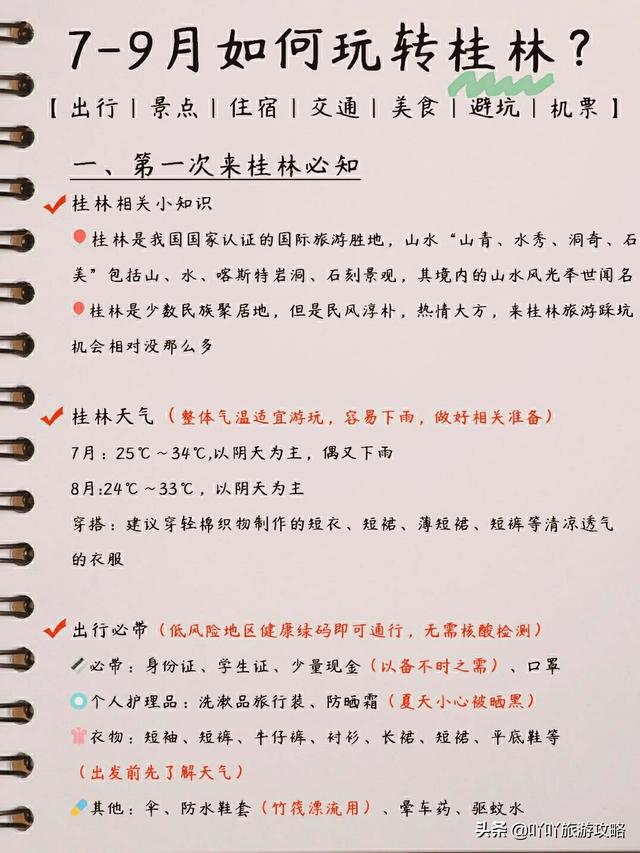 7-9月如何玩转桂林？
【出行|景点|住宿|交通|美食|避坑|机票】
一、第一次来桂林必知
桂林相关小知识
桂林是我国国家认证的国际旅游胜地，山水“山青、水秀、洞奇、石
美”包括山、水、喀斯特岩洞、石刻景观，其境内的山水风光举世闻名
桂林是少数民族聚居地，但是民风淳朴，热情大方，来桂林旅游踩坑
机会相对没那么多
桂林天气（整体气温适宜游玩，容易下雨，做好相关准备）
7月：25℃～34℃,以阴天为主，偶又下雨
8月:24℃～33℃，以阴天为主
穿搭：建议穿轻棉织物制作的短衣、短裙、薄短裙、短裤等清凉透气
的衣服
出行必带（低风险地区健康绿码即可通行，无需核酸检测）
必带：身份证、学生证、少量现金（以备不时之需）、口罩
个人护理品：洗漱品旅行装、防晒霜（夏天小心被晒黑）
衣物：短袖、短裤、牛仔裤、衬衫、长裙、短裙、平底鞋等
（出发前先了解天气）
其他：伞、防水鞋套（竹筏漂流用）、晕车药、驱蚊水
头条 @吖吖旅游攻略